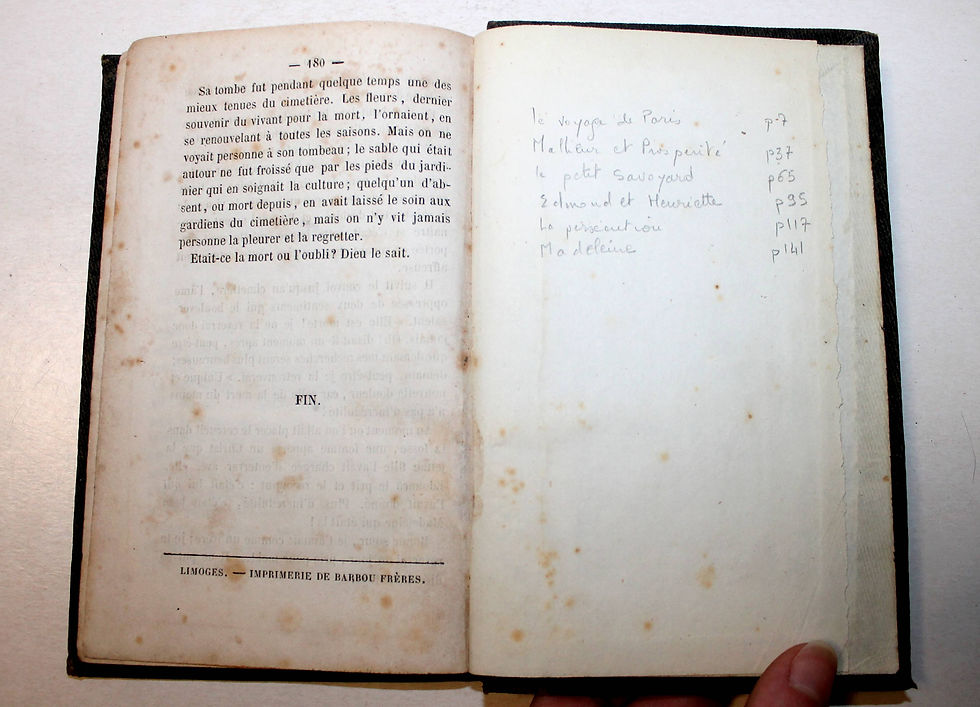 — 180 —
Sa tombe fut pendant quelque temps une des
mieux tenues du cimetière. Les fleurs, dernier
souvenir du vivant pour la mort, l'ornaient, en
se renouvelant à toutes les saisons. Mais on ne
voyait personne à son tombeau; le sable qui était
autour ne fut froissé que par les pieds du jardi-
nier qui en soignait la culture; quelqu'un d'ab-
sent, ou mort depuis, en avait laissé le soin aux
gardiens du cimetière, mais on n'y vit jamais
personne la pleurer et la regretter.
Etait-ce la mort ou l'oubli? Dieu le sait.
FIN.
LIMOGES. — IMPRIMERIE DE BARBOU FRÈRES.
le voyage de Paris p 7
Malheur et Prosperité p37
le petit Savoyard p65
Edmond et Henriette p95
La persecution p117
Madeleine p141